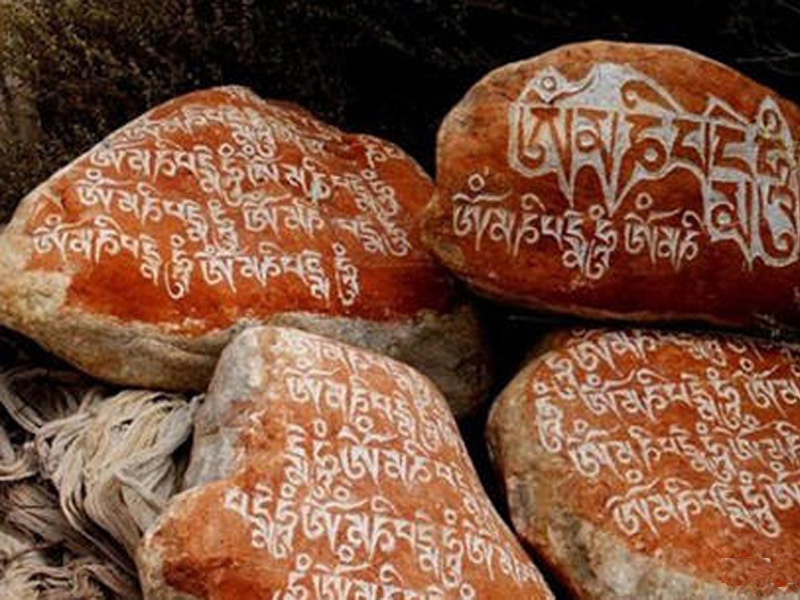 ཨོཾམཎིཔདྨེཧཱུྃཨོཾམཎིཔདྨེཧཱུྃ
ཨོཾམཎིཔདྨེཧཱུྃཨོཾམཎིཔདྨེཧཱུྃ
ཨོཾམཎིཔདྨེཧཱུྃཨོཾམཎིཔདྨེཧཱུྃ
ཨོཾམཎིཔདྨེཧཱུྃ
ཨོཾམཎིཔདྨེཧཱུྃཨོཾམཎི
ཨོཾམཎིཔདྨེཧཱུྃ
དྨེཧཱུྃཨོཾམཎིཔདྨེ
པདྨེཧཱུྃཨོཾམཎིཔདྨེཧཱུྃཨོཾམཎི
ཧཱུྃཨོཾམཎིཔདྨེ
ཧཱུྃཨོཾམཎིཔདྨེཧཱུྃཨོཾམ
ཨོཾམཎིཔདྨེཧཱུྃཨོཾམཎི
ཨོཾམཎིཔདྨེཧཱུྃཨོཾ